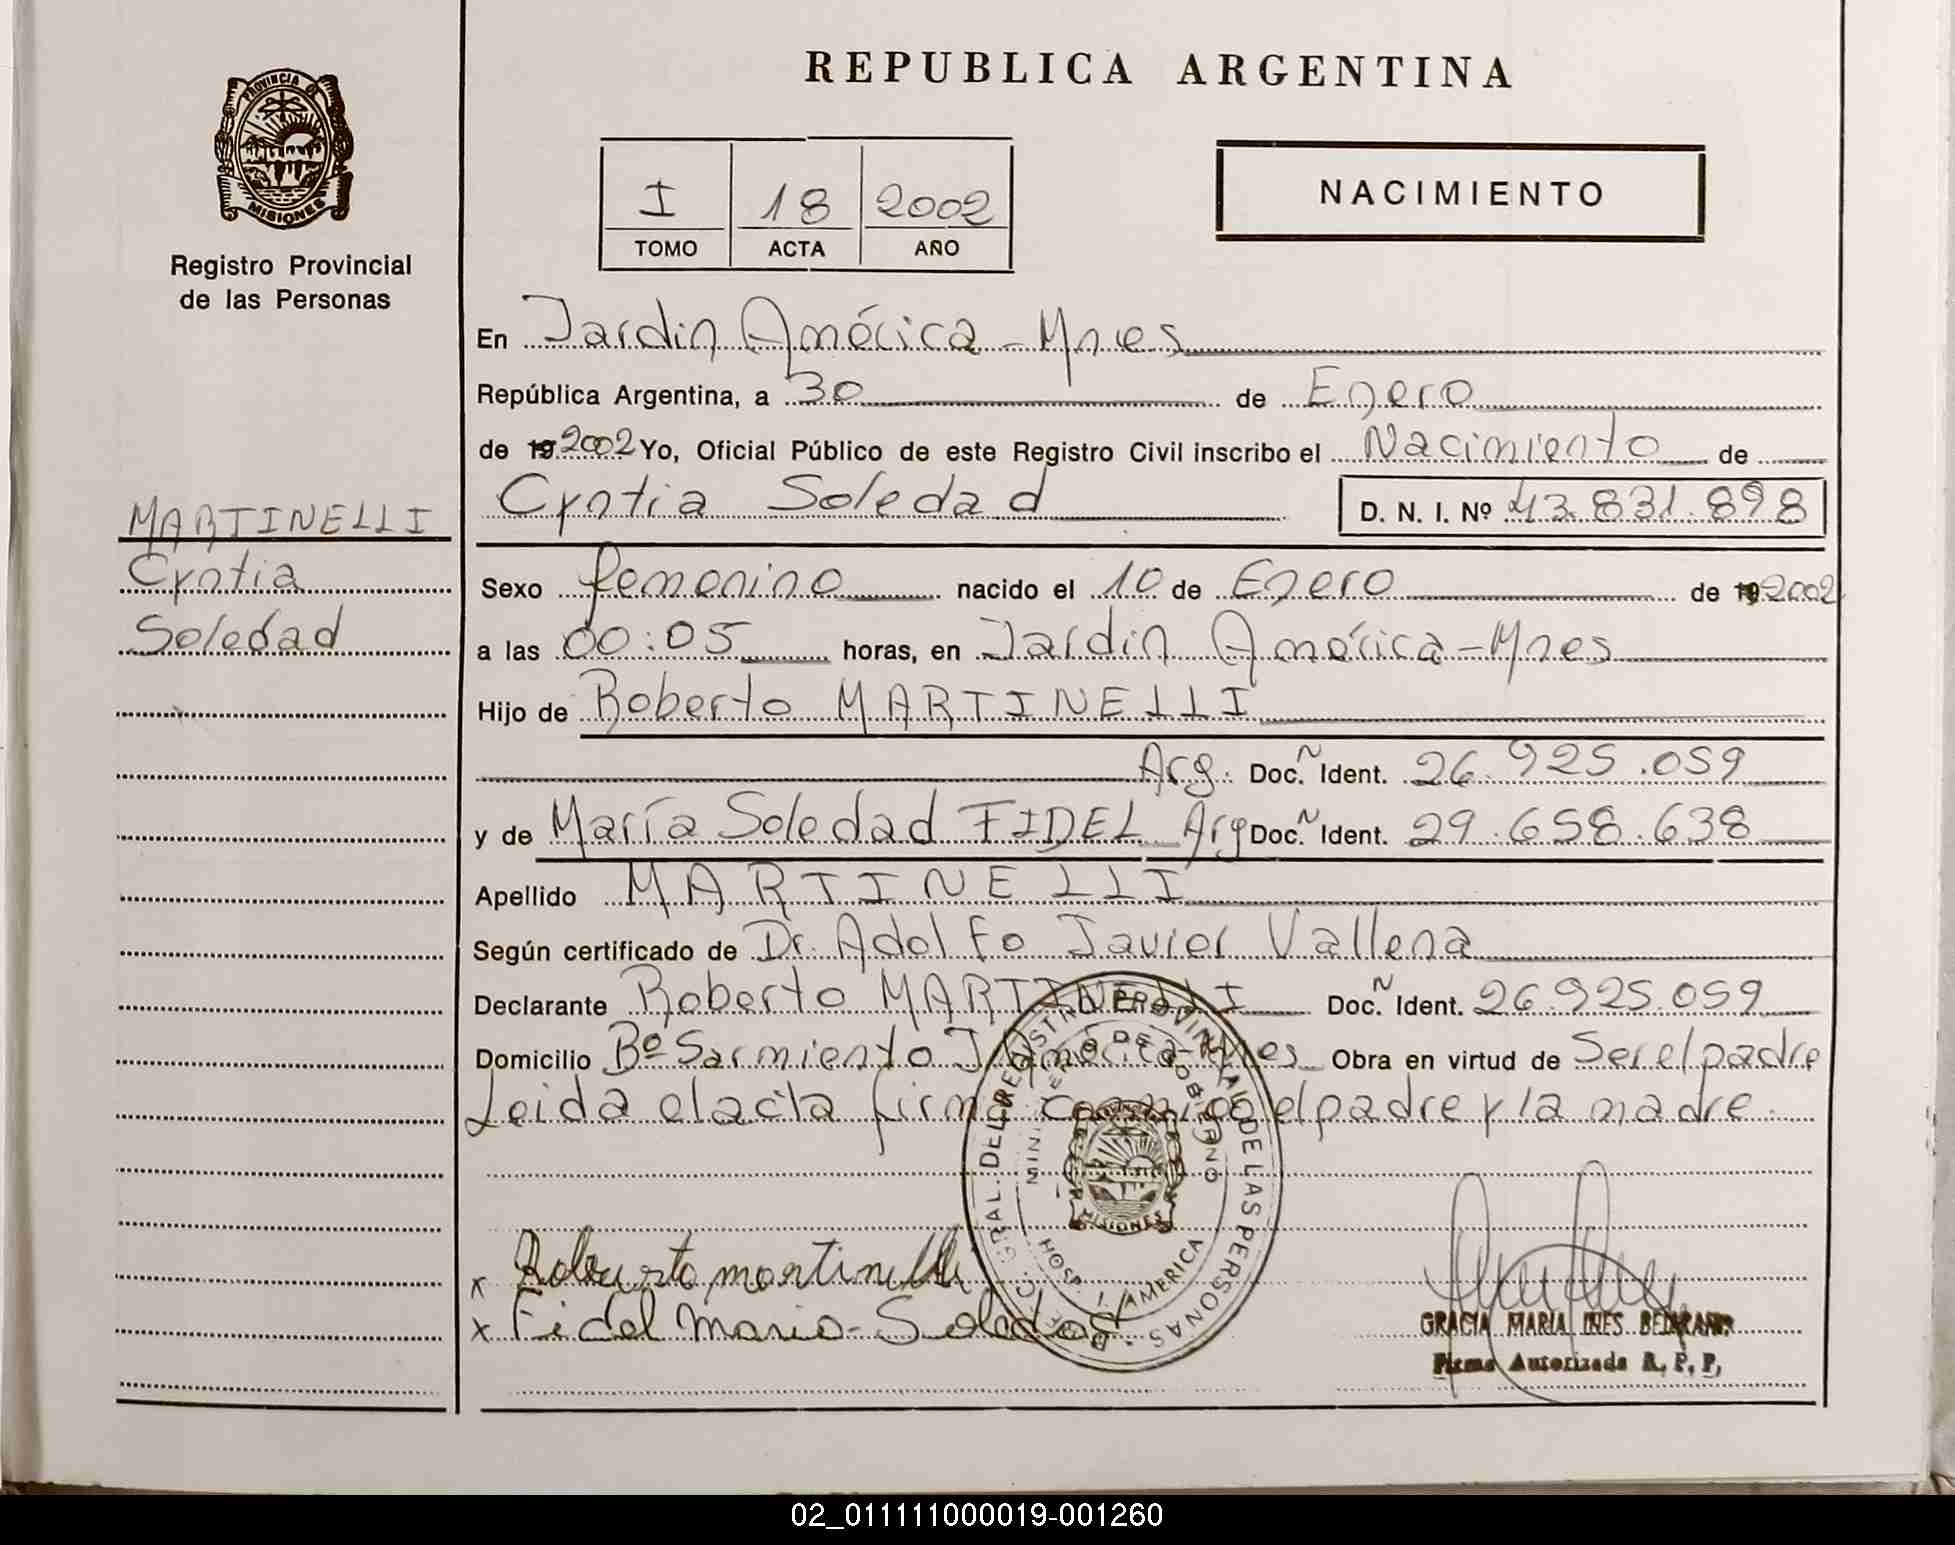 REPUBLICA ARGENTINA
PROVINCIA DE
MISIONES
Registro Provincial
de las Personas
I 18 2002
TOMO ACTA AÑO
NACIMIENTO
En Jardin América - Mnes
República Argentina, a 30 de Enero
de 19 2002 Yo, Oficial Público de este Registro Civil inscribo el Nacimiento de
Cyntia Soledad D. N. I. Nº 43.831.898
MARTINELLI
Cyntia
Soledad
Sexo femenino nacido el 10 de Enero de 19 2002
a las 00:05 horas, en Jardin América - Mnes
Hijo de Roberto MARTINELLI
Arg. Doc. N Ident. 26.925.059
y de María Soledad FIDEL Arg Doc. N Ident. 29.658.638
Apellido MARTINELLI
Según certificado de Dr. Adolfo Javier Vallena
Declarante Roberto MARTINELLI Doc. N Ident. 26.925.059
Domicilio Bº Sarmiento J. América - Mnes Obra en virtud de Ser el padre
Leida el acta firma conmigo el padre y la madre.
GRAL. DEL REGISTRO PROVINCIAL DE LAS PERSONAS
MIN. DE GOBIERNO
MISIONES
HOSP. J. AMERICA
x Roberto martinelli
x Fidel Maria - Soledad
GRACIA MARIA INES
Firma Autorizada R. P. P.
02_011111000019-001260